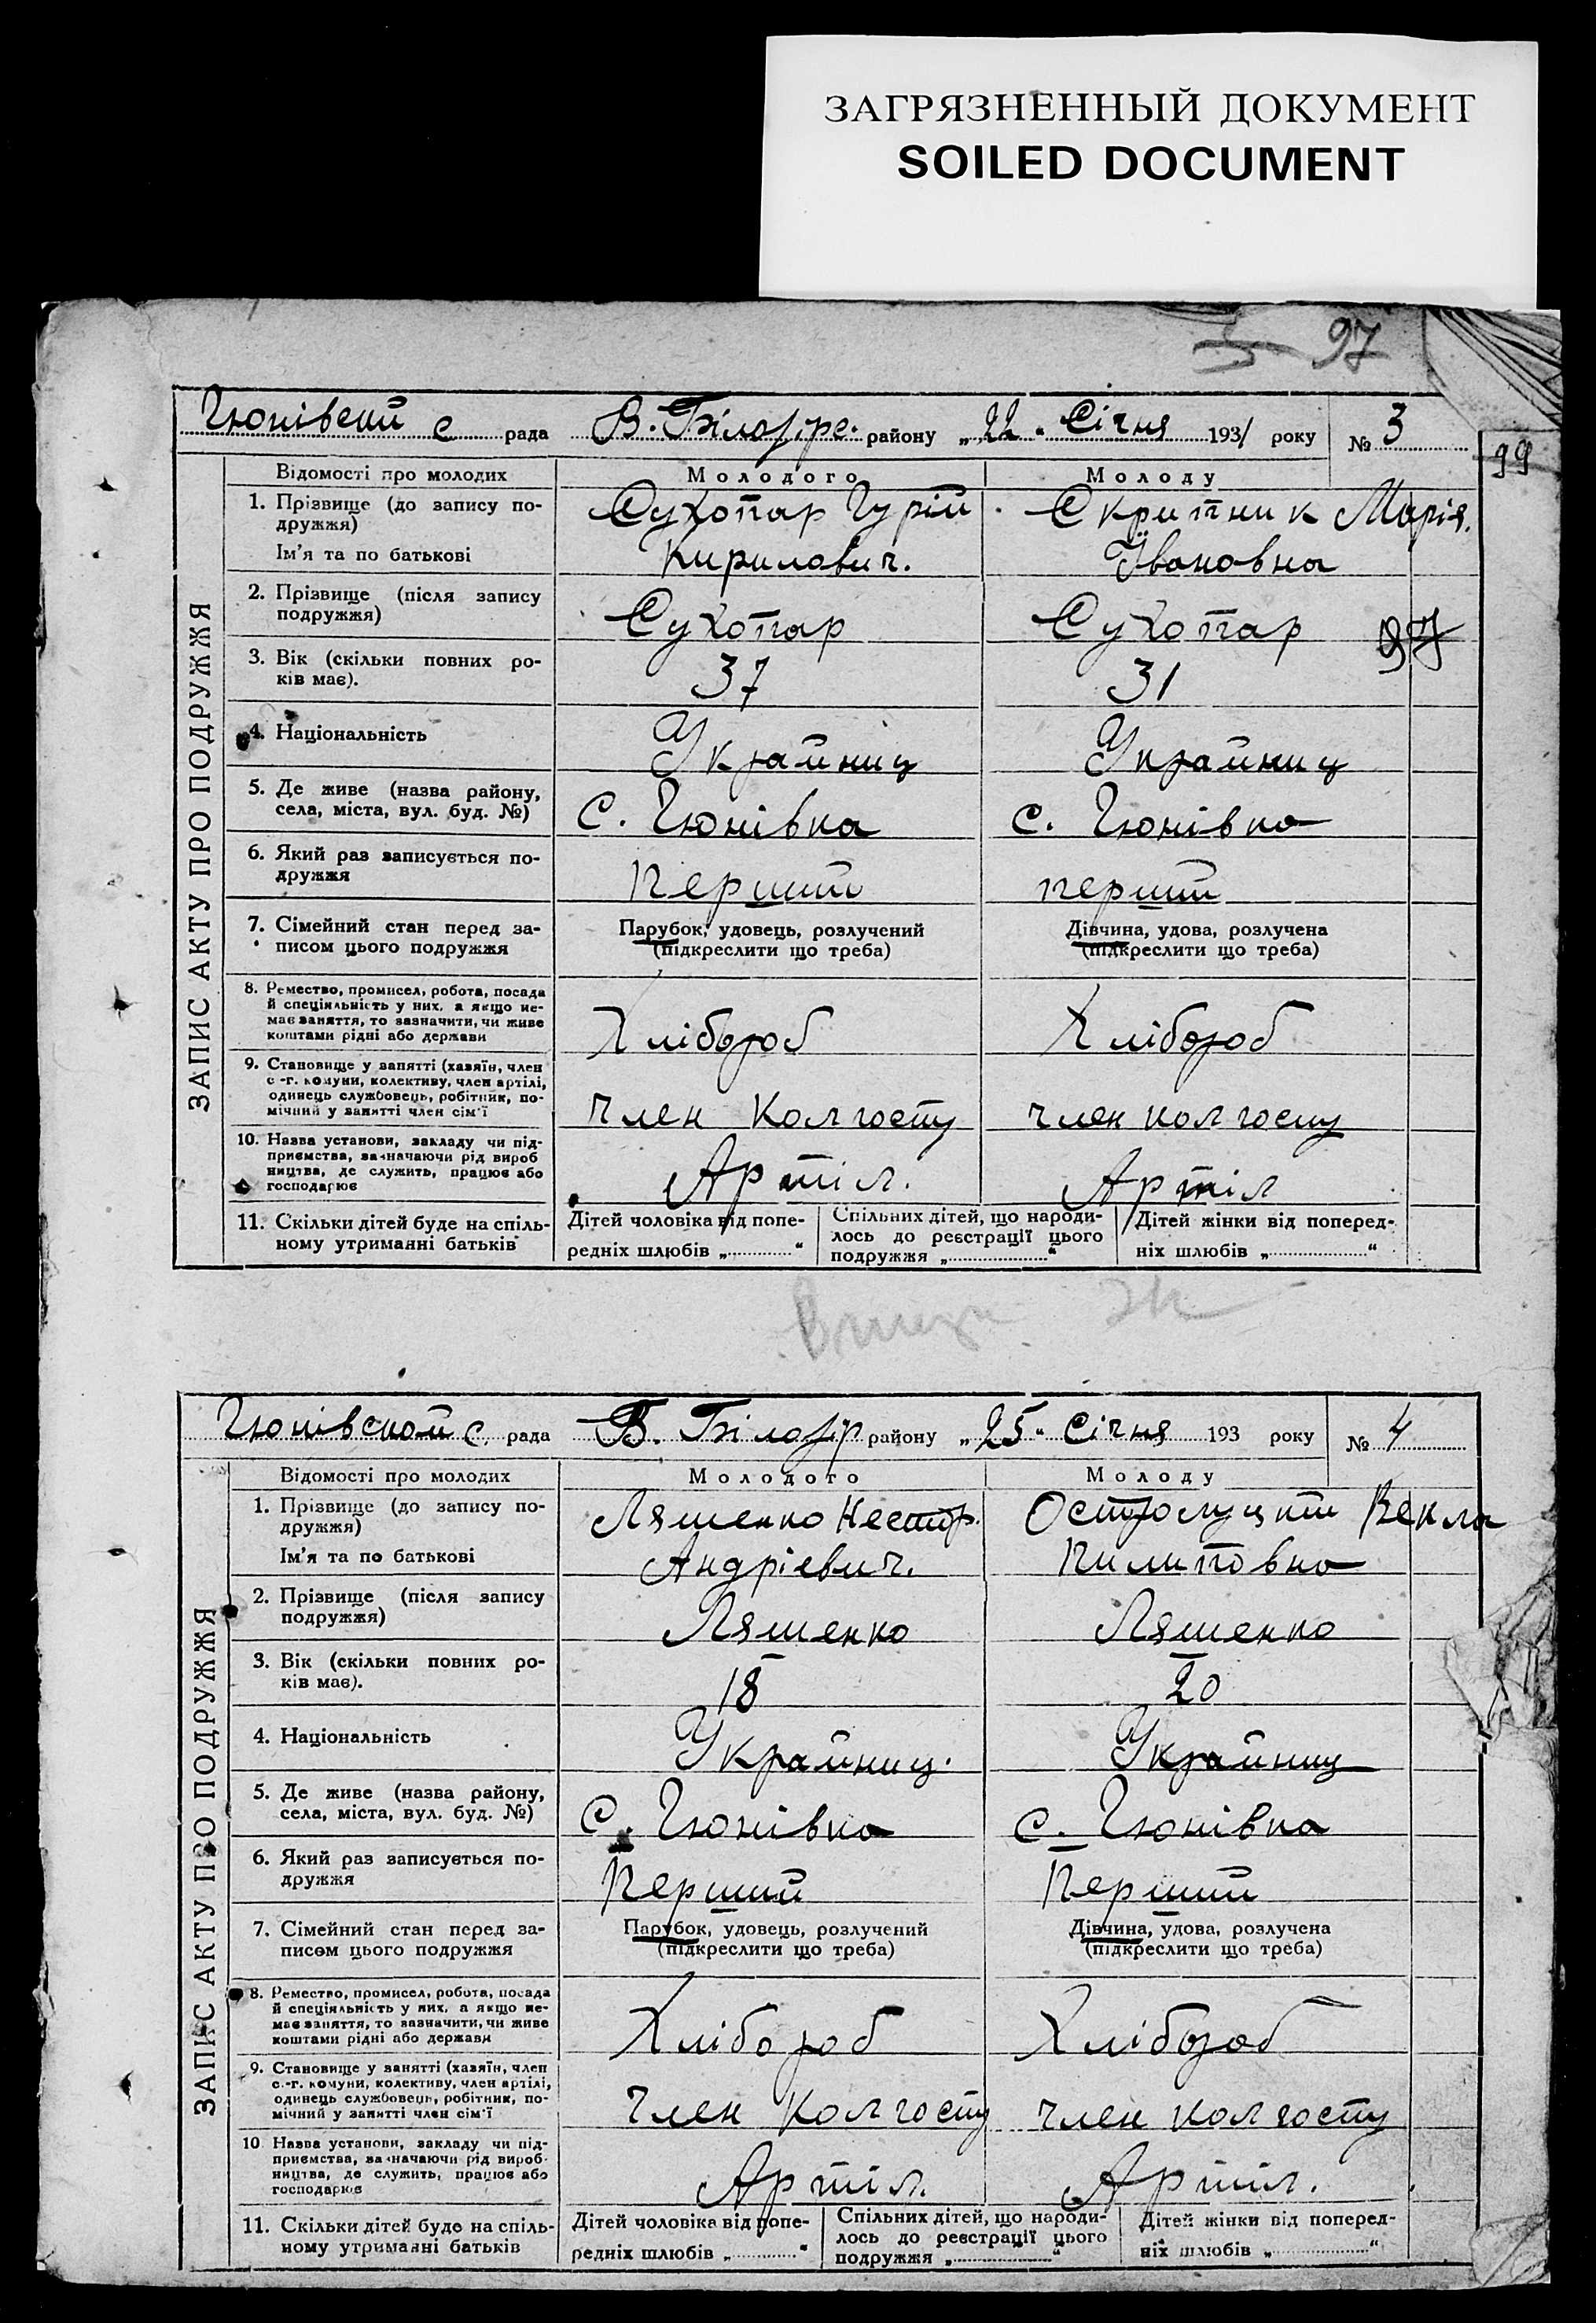 ЗАГРЯЗНЕННЫЙ ДОКУМЕНТ
SOILED DOCUMENT
97
Гюнівский с рада В. Білозірс. району „22“ Січня 1931 року № 3
99
ЗАПИС АКТУ ПРО ПОДРУЖЖЯ
Відомості про молодих Молодого Молоду
1. Прізвище (до запису по- Сухопар Гурій Скрипник Марія.
дружжя)
Ім'я та по батькові Кирилович. Івановна
2. Прізвище (після запису Сухопар Сухопар 97
подружжя)
3. Вік (скільки повних ро- 37 31
ків має).
4. Національність Украйниц Украйниц
5. Де живе (назва району, с. Гюнівка с. Гюнівка
села, міста, вул. буд. №)
6. Який раз записується по- Перший перший
дружжя
7. Сімейний стан перед за- Парубок, удовець, розлучений Дівчина, удова, розлучена
писом цього подружжя (підкреслити що треба) (підкреслити що треба)
8. Ремество, промисел, робота, посада
й спеціяльність у них, а якщо не-
має заняття, то зазначити, чи живе Хлібороб Хлібороб
коштами рідні або держави
9. Становище у занятті (хазяїн, член
с.-г. комуни, колективу, член артілі,
одинець службовець, робітник, по- Член Колгоспу член колгоспу
мічний у занятті член сім'ї
10. Назва установи, закладу чи під-
приємства, зазначаючи рід вироб
ництва, де служить, працює або Артіл. Артіл
господарює
11. Скільки дітей буде на спіль- Дітей чоловіка від попе- Спільних дітей, що народи- Дітей жінки від поперед-
ному утриманні батьків редніх шлюбів „ “ лось до реєстрації цього ніх шлюбів „ “
подружжя „ “
Гюнівской с. рада В. Білозір району „25“ Січня 193 року № 4
ЗАПИС АКТУ ПРО ПОДРУЖЖЯ
Відомості про молодих Молодого Молоду
1. Прізвище (до запису по- Ляшенко Нестор. Остролуцкий Векла
дружжя)
Ім'я та по батькові Андрієвич. Пилиповна
2. Прізвище (після запису Ляшенко Ляшенко
подружжя)
3. Вік (скільки повних ро- 18 20
ків має).
4. Національність Украйниц. Украйниц
5. Де живе (назва району, С. Гюнівка с. Гюнівка
села, міста, вул. буд. №)
6. Який раз записується по- Перший Перший
дружжя
7. Сімейний стан перед за- Парубок, удовець, розлучений Дівчина, удова, розлучена
писом цього подружжя (підкреслити що треба) (підкреслити що треба)
8. Ремество, промисел, робота, посада
й спеціяльність у них, а якщо не-
має заняття, то зазначити, чи живе Хлібороб Хлібороб
коштами рідні або держави
9. Становище у занятті (хазяїн, член
с.-г. комуни, колективу, член артілі,
одинець службовець, робітник, по- Член Колгоспу член колгоспу
мічний у занятті член сім'ї
10 Назва установи, закладу чи під-
приємства, зазначаючи рід вироб-
ництва, де служить, працює або Артіл. Артіл.
господарює
11. Скільки дітей буде на спіль- Дітей чоловіка від попе- Спільних дітей, що народи- Дітей жінки від поперед-
ному утриманні батьків редніх шлюбів „ “ лось до реєстрації цього ніх шлюбів „ “
подружжя „ “